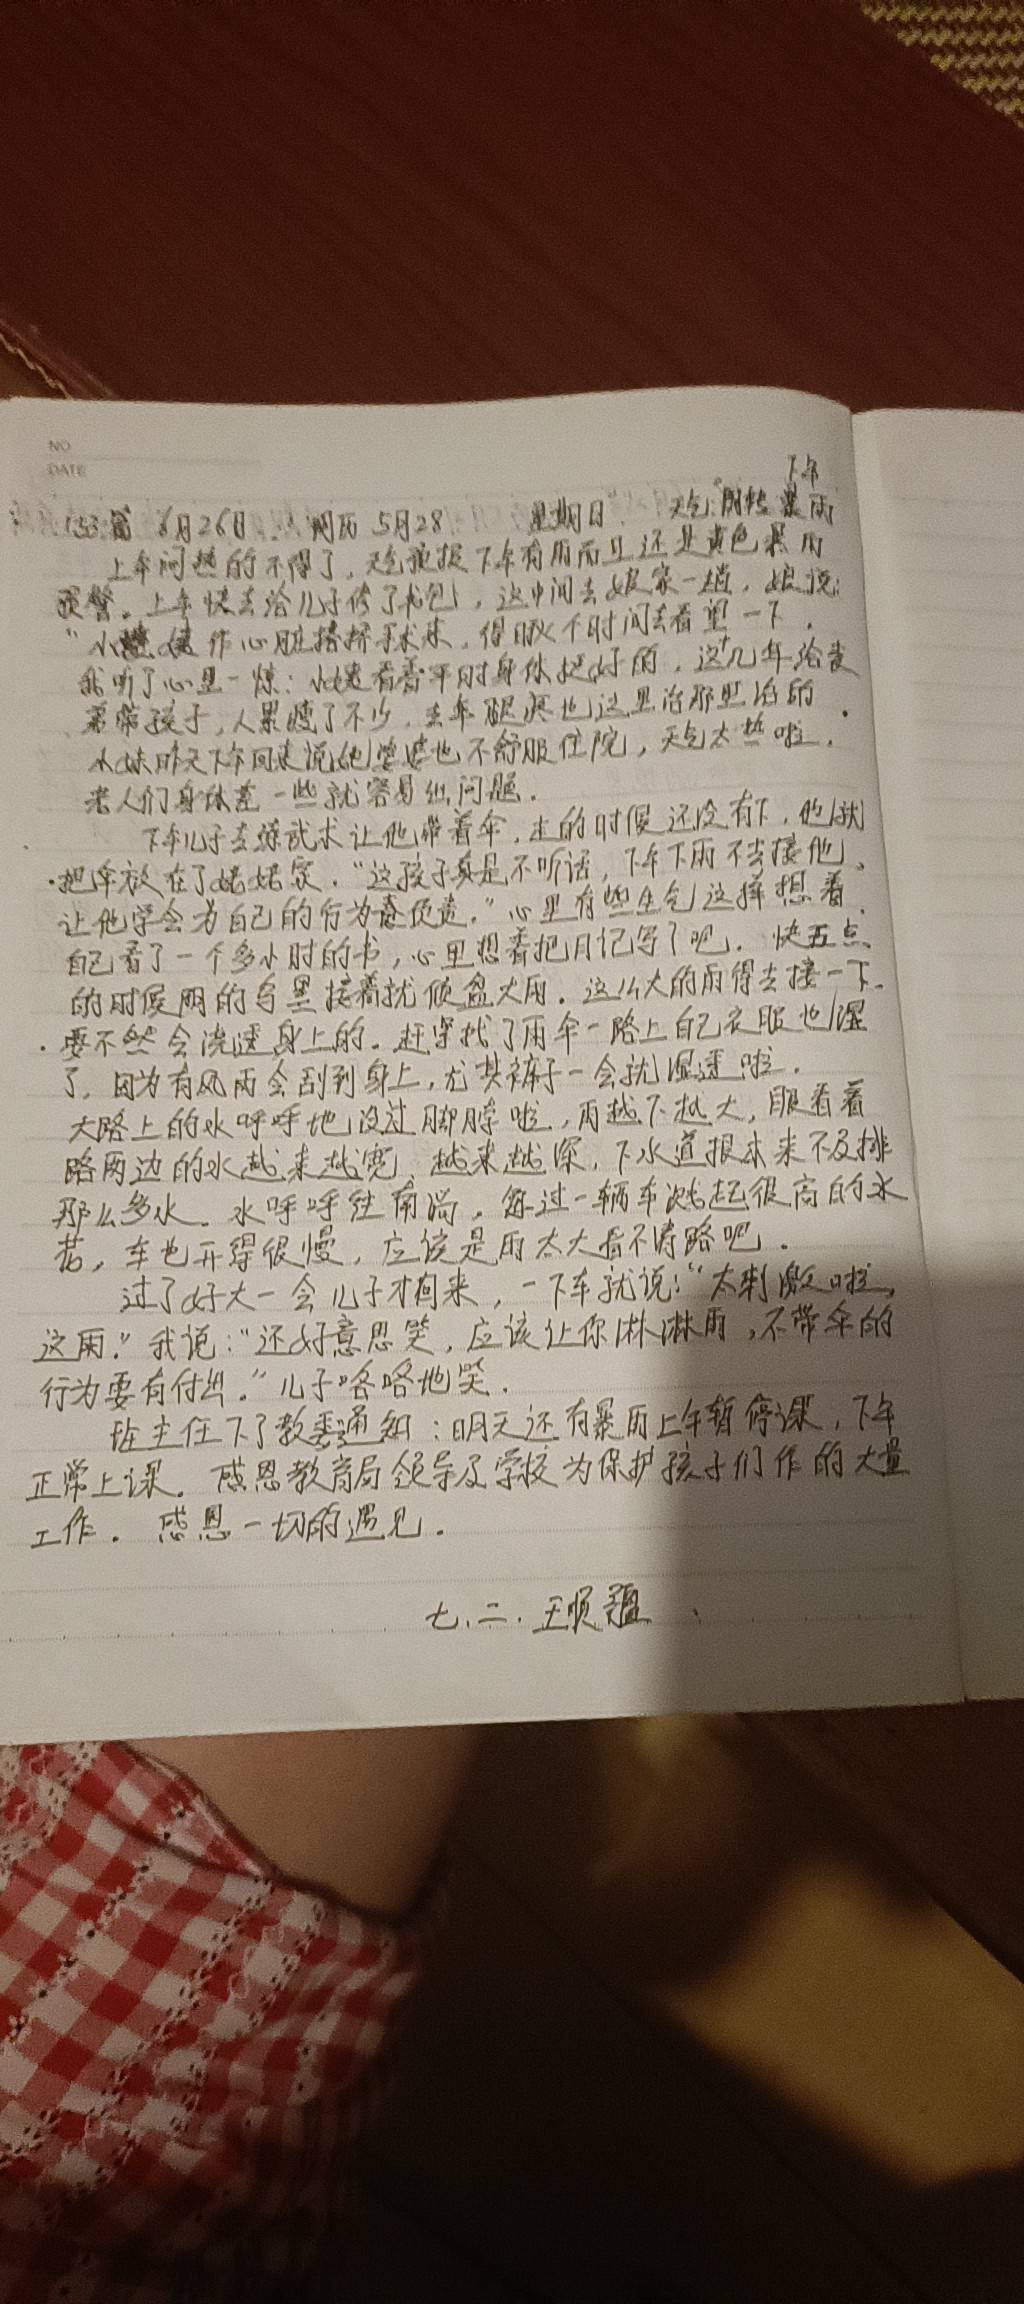 NO
DATE
下午
153篇 6月26日. 阴历5月28 星期日. 天气 阴转暴雨
上午闷热的不得了，天气预报下午有雨而且还是黄色暴雨
预警。上午快去给儿子修了书包，这中间去娘家一趟，娘说:
"小 作心脏搭桥手术来，得 个时间去看望一下.
我听了心里一惊: 看着平时身体挺好的，这几年给表
弟带孩子，人累瘦了不少，去年腿疼也这里治那里治的.
小妹昨天下午回来说她婆婆也不舒服住院，天气太热啦.
老人们身体差一些就容易出问题.
下午儿子去练武术让他带着伞，走的时候还没有下，他就
把伞放在了姥姥家. "这孩子真是不听话，下午下雨不去接他、
让他学会为自己的行为 负责." 心里有些生气这样想着.
自己看了一个多小时的书，心里想着把日记写了吧. 快五点
的时候 的乌黑接着就倾盆大雨. 这么大的雨得去接一下.
要不然会浇透身上的. 赶紧找了雨伞一路上自己衣服也湿
了，因为有风雨会刮到身上，尤其裤子一会就湿透啦.
大路上的水呼呼地没过脚脖啦，雨越下越大，眼看着
路两边的水越来越宽、越来越深，下水道根本来不及排
那么多水. 水呼呼往南淌，每过一辆车溅起很高的水
花，车也开得很慢，应该是雨太大看不清路吧.
过了好大一会儿子才回来，一下车就说:"太刺激啦,
这雨." 我说:"还好意思笑，应该让你淋淋雨，不带伞的
行为要有付出." 儿子咯咯地笑.
班主任下了教委通知:明天还有暴雨上午暂停课，下午
正常上课. 感恩教育局领导及学校为保护孩子们作的大量
工作. 感恩一切的遇见.
七.二. 王顺